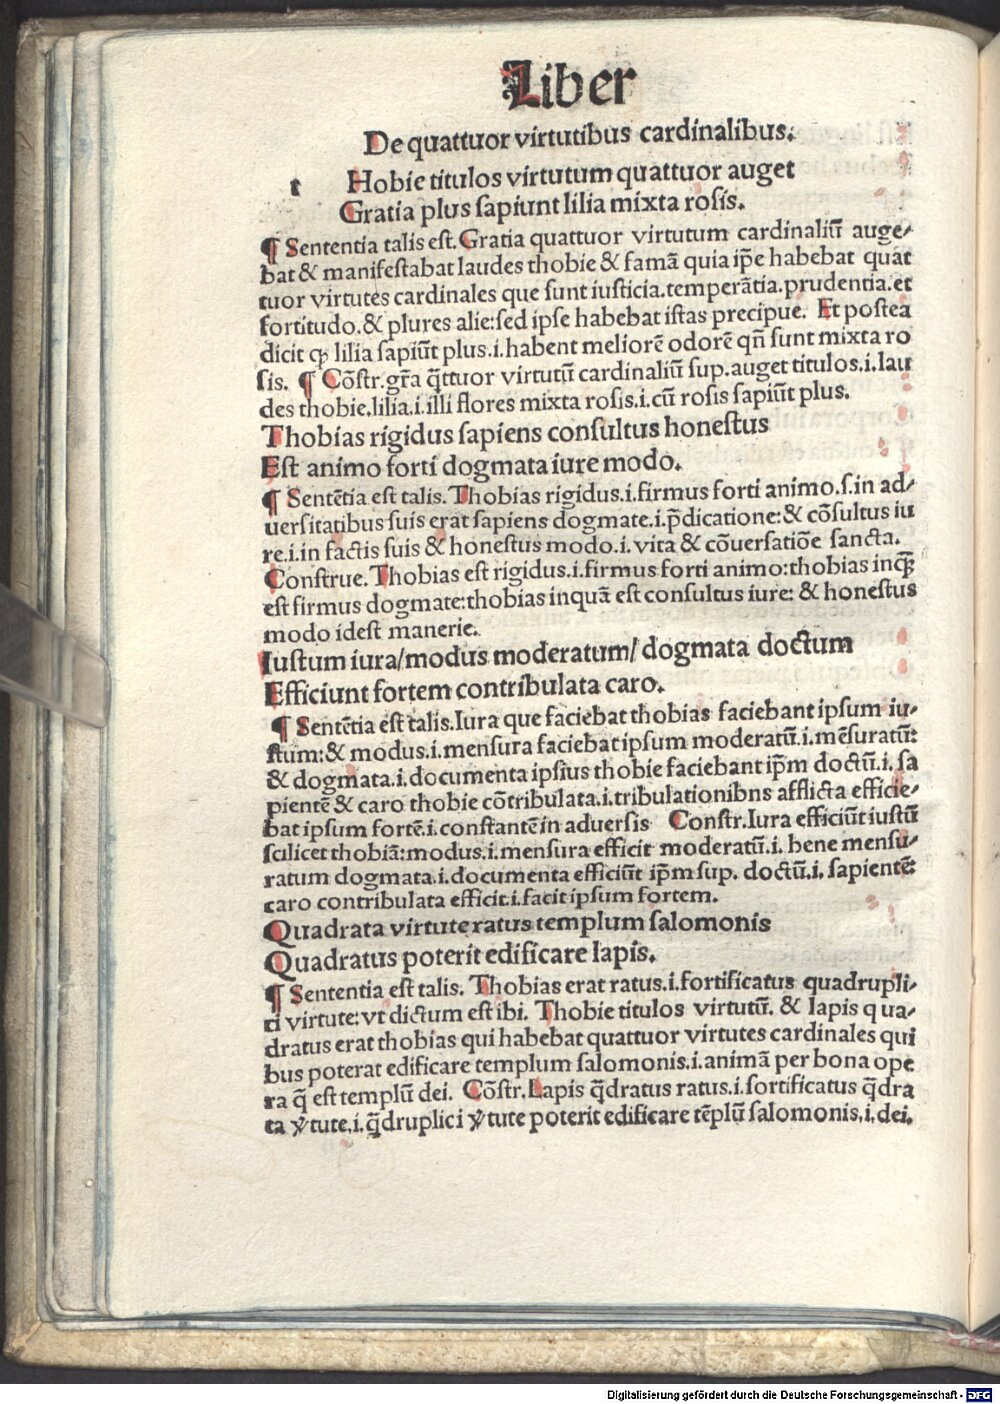 Liber
De quattuor virtutibus cardinalibus.
t Hobie titulos virtutum quattuor auget
Gratia plus ſapiunt lilia mixta roſis.
¶ Sententia talis eſt. Gratia quattuor virtutum cardinaliū auge⸗
bat & manifeſtabat laudes thobie & famā quia ip̄e habebat quat
tuor virtutes cardinales que ſunt iuſticia.temperātia.prudentia.et
fortitudo.& plures alie:ſed ipſe habebat iſtas precipue. Et poſtea
dicit ꝙ lilia ſapiūt plus.i.habent meliorē odorē qn̄ ſunt mixta ro
ſis. ¶ Cōſtr.gr̄a q̄ttuor virtutū cardinaliū ſup.auget titulos.i.lau
des thobie.lilia.i.illi flores mixta roſis.i.cū roſis ſapiūt plus.
Thobias rigidus ſapiens conſultus honeſtus
Eſt animo forti dogmata iure modo.
¶ Sentētia eſt talis. Thobias rigidus.i.firmus forti animo.ſ.in ad⸗
uerſitatibus ſuis erat ſapiens dogmate.i.p̄dicatione:& cōſultus iu
re.i.in factis ſuis & honeſtus modo.i.vita & cōuerſatiōe ſancta.
Conſtrue. Thobias eſt rigidus.i.firmus forti animo:thobias inqꝫ
eſt firmus dogmate:thobias inquā eſt conſultus iure: & honeſtus
modo ideſt manerie.
Iuſtum iura/modus moderatum/ dogmata doctum
Efficiunt fortem contribulata caro.
¶ Sentētia eſt talis.Iura que faciebat thobias faciebant ipſum iu⸗
ſtum:& modus.i.menſura faciebat ipſum moderatū.i.mēſuratū:
& dogmata.i.documenta ipſius thobie faciebant ip̄m doctū.i.ſa
pientē & caro thobie cōtribulata.i.tribulationibns afflicta efficie⸗
bat ipſum fortē.i.conſtantē in aduerſis Conſtr.Iura efficiūt iuſtū
ſcilicet thobiā:modus.i.menſura efficit moderatū.i. bene menſu⸗
ratum dogmata.i.documenta efficiūt ip̄m sup. doctū.i. ſapientē:
caro contribulata efficit.i.facit ipſum fortem.
Quadrata virtute ratus templum ſalomonis
Quadratus poterit edificare lapis.
¶ Sententia eſt talis. Thobias erat ratus.i.fortificatus quadrupli⸗
ci virtute:vt dictum eſt ibi. Thobie titulos virtutū. & lapis qua⸗
dratus erat thobias qui habebat quattuor virtutes cardinales qui
bus poterat edificare templum ſalomonis.i.animā per bona ope
ra q̄ eſt templū dei. Cōſtr.Lapis q̄dratus ratus.i.fortificatus q̄dra
ta v̄tute.i.q̄druplici v̄tute poterit edificare tēplū ſalomonis.i.dei.
Digitalisierung gefördert durch die Deutsche Forschungsgemeinschaft - DFG